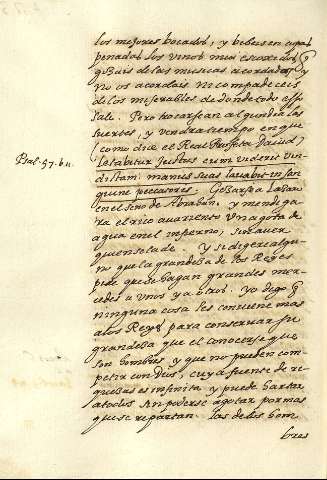 los mejores bocados, y bebeis en copas
penadas los vinos mui escoxidos, q̃
gozais de las musicas acordadas, y
no os acordais ni compadeceis
de los miserables de donde todo esso
sale. Pero trocarsean algun dia las
suertes, y vendra tiempo en que
(como dice el Real Propheta Dauid)
Psal. 57. b. 11.
Lætabitur Justus cum viderit vin-
dictam. manus suas lauabit in san
guine peccatoris. Gozarsea Lazaro
en el seno de Abrahan. y mendiga
ra el rico auariento una gota de
agua en el infierno, sin auer
quien se la de. Y si digere algu-
no que la grandeza de los Reyes
pide que se hagan grandes mer-
cedes a unos y a otros. yo digo q̃
ninguna cosa les conviene mas
a los Reyes para conservar su
grandeza que el conocerse que
son hombres, y que no pueden com-
petir con Dios, cuya fuente de ri-
quezas es infinita y puede hartar
a todos sin poderse agotar por mas
que se repartan. las de los hom
bres